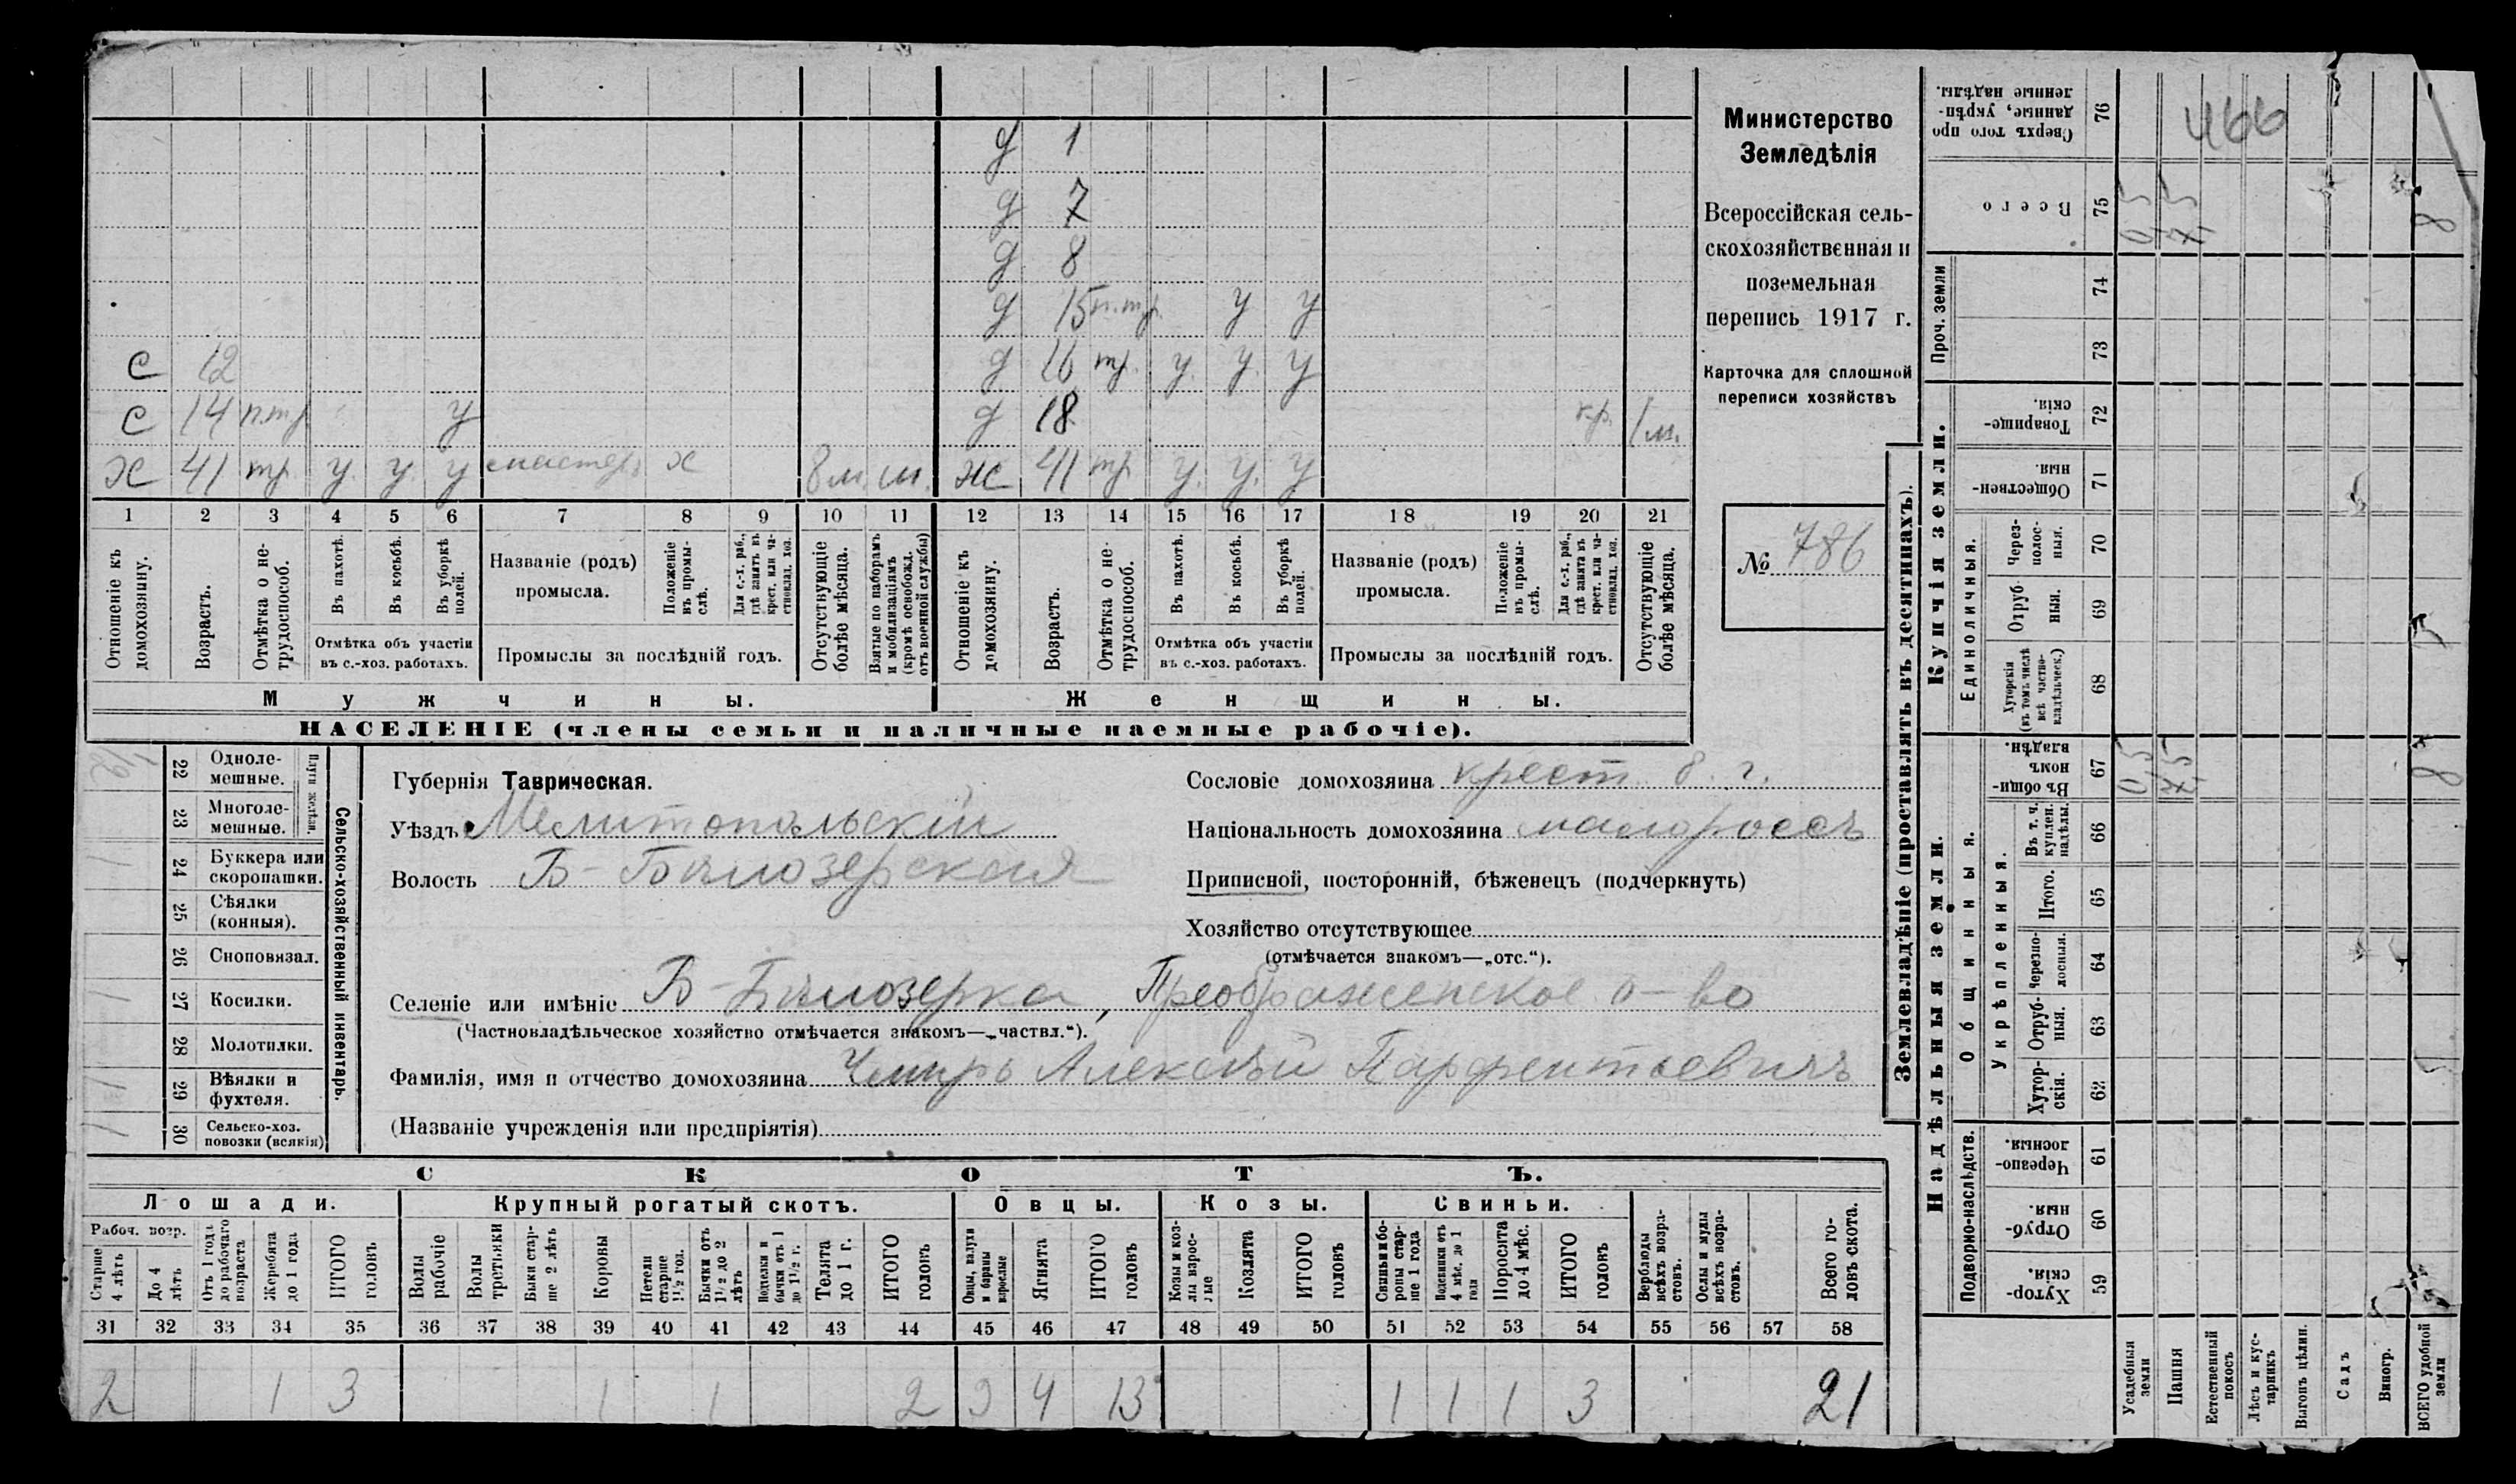 д 1
д 7
д 8
д 15 п.тр. у у
с 12 д 16 тр. у. у. у
с 14 п.тр. у д 18 кр. 1 м.
х 41 тр. у. у. у х 8 м. ж 41 тр. у. у. у
1 2 3 4 5 6 7 8 9 10 11 12 13 14 15 16 17 18 19 20 21
Отношеніе къ домохозяину.
Возрастъ.
Отмѣтка о не-трудоспособ.
Въ пахотѣ.
Въ косьбѣ.
Въ уборкѣ полей.
Отмѣтка объ участіи
въ с.-хоз. работахъ.
Названіе (родъ)
промысла.
Положеніе въ промы-слѣ.
Для с.-х. раб., гдѣ занятъ въ крест. или ча-стновлад. хоз.
Промыслы за послѣдній годъ.
Отсутствующіе болѣе мѣсяца.
Взятые по наборамъ и мобилизаціямъ (кромѣ освобожд. отъ военной службы)
Отношеніе къ домохозяину.
Возрастъ.
Отмѣтка о не-трудоспособ.
Въ пахотѣ.
Въ косьбѣ.
Въ уборкѣ полей.
Отмѣтка объ участіи
въ с.-хоз. работахъ.
Названіе (родъ)
промысла.
Положеніе въ промы-слѣ.
Для с.-х. раб., гдѣ занята въ крест. или ча-стновлад. хоз.
Промыслы за послѣдній годъ.
Отсутствующіе болѣе мѣсяца.
Мужчины. Женщины.
НАСЕЛЕНІЕ (члены семьи и наличные наемные рабочіе).
Министерство
Земледѣлія
Всероссійская сель-
скохозяйственная и
поземельная
перепись 1917 г.
Карточка для сплошной
переписи хозяйствъ
№ 786
Сельско-хозяйственный инвентарь.
Плуги желѣзн.
22 Одноле-мешные.
23 Многоле-мешные.
24 Буккера или скоропашки.
25 Сѣялки (конныя).
26 Сноповязал.
27 Косилки.
28 Молотилки.
29 Вѣялки и фухтеля.
30 Сельско-хоз. повозки (всякія)
Губернія Таврическая.
Уѣздъ Мелитопольскій
Волость Б-Бѣлозерская
Сословіе домохозяина крест. 8. г.
Національность домохозяина малороссъ
Приписной, посторонній, бѣженецъ (подчеркнуть)
Хозяйство отсутствующее
(отмѣчается знакомъ—„отс.“).
Селеніе или имѣніе Б-Бѣлозерка, Преображенское о-во
(Частновладѣльческое хозяйство отмѣчается знакомъ—„частвл.“).
Фамилія, имя и отчество домохозяина Чмирь Алексѣй Парфентьевичъ
(Названіе учрежденія или предпріятія)
СКОТЪ.
Лошади. Крупный рогатый скотъ. Овцы. Козы. Свиньи.
Рабоч. возр.
Старше 4 лѣтъ
До 4 лѣтъ
Отъ 1 года до рабочаго возраста
Жеребята до 1 года
ИТОГО головъ
Волы рабочіе
Волы третьяки
Быки стар-ше 2 лѣтъ
Коровы
Нетели старше 1½ год.
Бычки отъ 1½ до 2 лѣтъ
Подтелки и бычки отъ 1 до 1½ г.
Телята до 1 г.
ИТОГО головъ
Овцы, валухи и бараны взрослые
Ягнята
ИТОГО головъ
Козы и коз-лы взрос-лые
Козлята
ИТОГО головъ
Свиньи и бо-ровы стар-ше 1 года
Подсвинки отъ 4 мѣс. до 1 года
Поросята до 4 мѣс.
ИТОГО головъ
Верблюды всѣхъ возра-стовъ.
Ослы и мулы всѣхъ возра-стовъ.
Всего го-ловъ скота.
31 32 33 34 35 36 37 38 39 40 41 42 43 44 45 46 47 48 49 50 51 52 53 54 55 56 57 58
2 1 3 1 1 2 9 4 13 1 1 1 3 21
Землевладѣніе (проставлять въ десятинахъ).
Сверхъ того про данные, укрѣп-ленные надѣлы. 76 466
Всего 75 8
Проч. земли 74 73
Купчія земли.
Товарище-скія. 72
Обществен-ныя. 71
Единоличныя.
Через-полос-ныя. 70
Отруб-ныя. 69
Хуторскія (въ томъ числѣ всѣ частно-владѣльческ.) 68
Надѣльныя земли.
Общинныя.
Въ общи-номъ владѣн. 67 8
Укрѣпленныя.
Въ т. ч. куплен. надѣлы. 66
Итого. 65
Черезпо-лосныя. 64
Отруб-ныя. 63
Хутор-скія. 62
Подворно-наслѣдств.
Черезпо-лосныя. 61
Отруб-ныя. 60
Хутор-скія. 59
Усадебныя земли
Пашня
Естественный покосъ
Лѣсъ и кус-тарникъ
Выгонъ цѣлин.
Садъ
Виногр.
ВСЕГО удобной земли